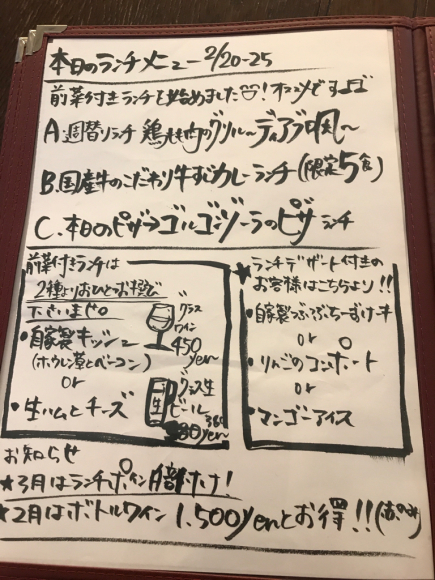 本日のランチメニュー 2/20-25
前菜付きランチを始めました!オススメです
A.週替りランチ 鶏もも肉のグリル〜ディアブロ風〜
B.国産牛のこだわり牛すじカレーランチ(限定5食)
C.本日のピザランチ ゴルゴンゾーラのピザ
前菜付きランチは
2種よりお一つお選び
下さいませ。
・自家製キッシュ
(ホウレン草とベーコン)
or
・生ハムとチーズ
グラス
ワイン
450
yen
生
グラス生
ビール
380yen
★ランチデザート付きの
お客様はこちらより!!
・自家製つぶつぶちーずけーき
or
・りんごのコンポート
or
・マンゴーアイス
お知らせ
★3月はランチポイント
★2月はボトルワイン 1,500yenとお得!!